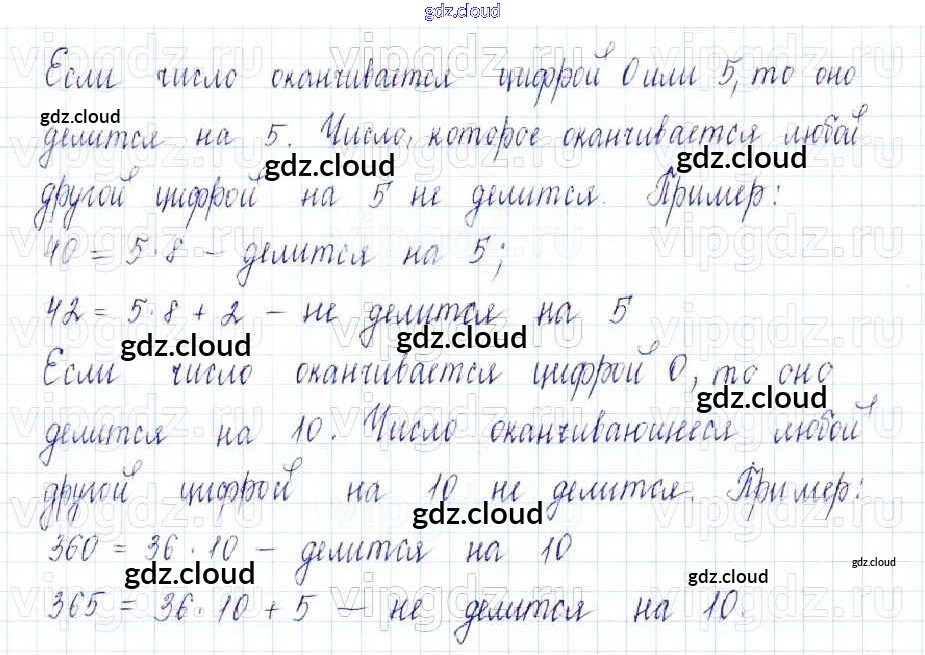 gdz.cloud
Если число оканчивается цифрой 0 или 5, то оно
gdz.cloud
делится на 5. Число, которое оканчивается любой
gdz.cloud gdz.cloud
другой цифрой на 5 не делится. Пример:
40 = 5·8 – делится на 5;
42 = 5·8 + 2 – не делится на 5
gdz.cloud gdz.cloud
Если число оканчивается цифрой 0, то оно
gdz.cloud
делится на 10. Число оканчивающиеся любой
другой цифрой на 10 не делится. Пример:
gdz.cloud
360 = 36 · 10 – делится на 10
gdz.cloud gdz.cloud gdz.cloud
365 = 36·10 + 5 – не делится на 10.